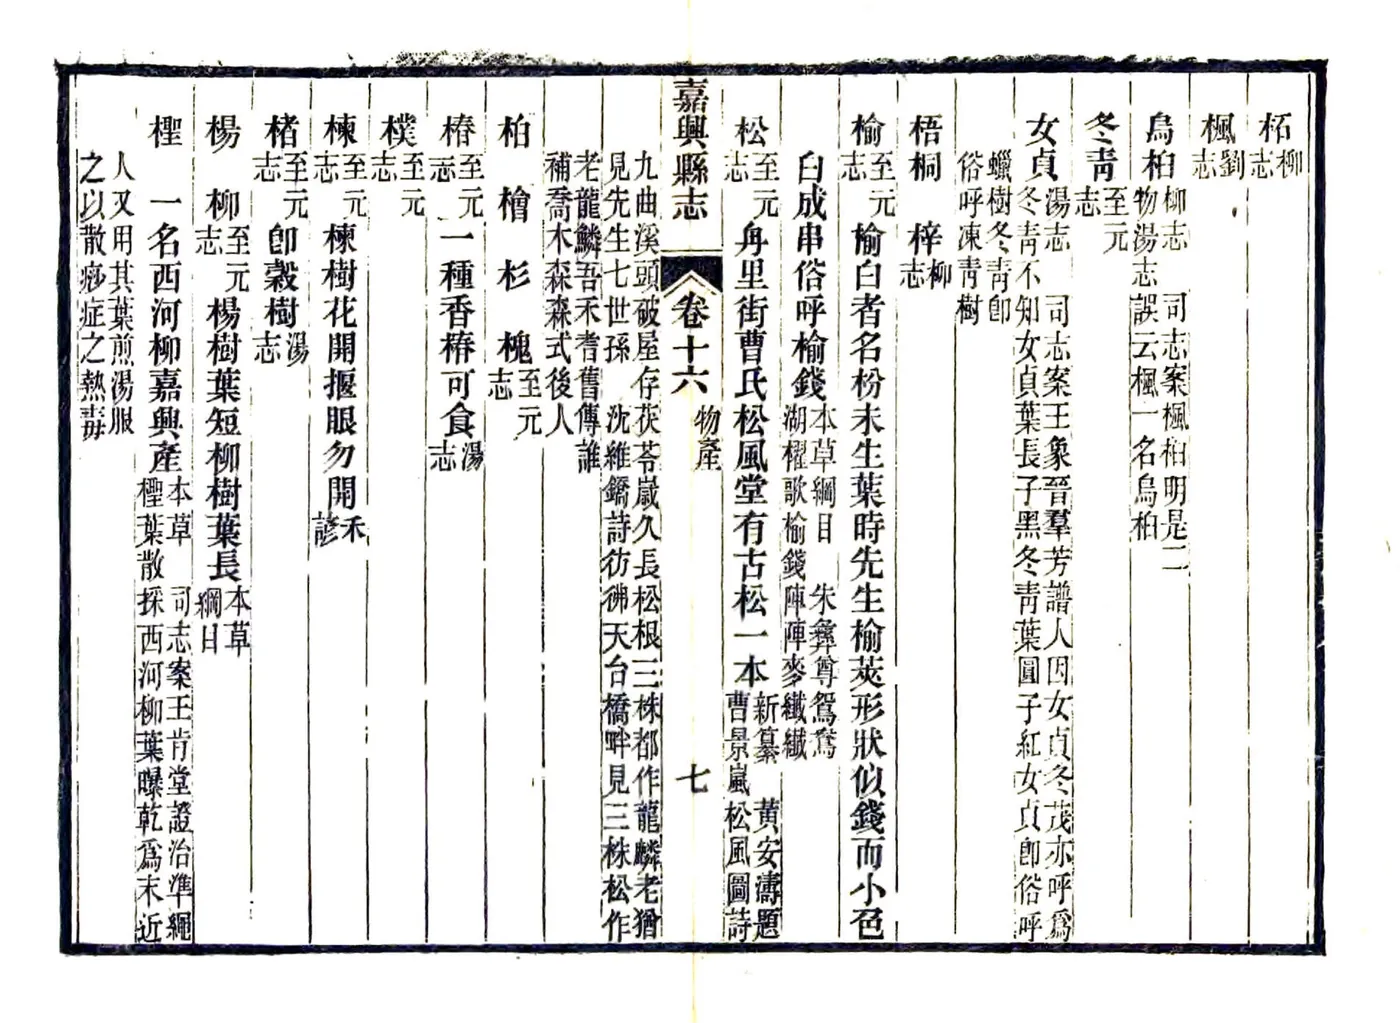 柘柳志
楓劉志
烏桕柳志 司志案楓桕明是二
物湯志誤云楓一名烏桕
冬靑至元志
女貞湯志 司志案王象晉羣芳譜人因女貞冬茂亦呼爲
冬靑不知女貞葉長子黑冬靑葉圓子紅女貞卽俗呼
蠟樹冬靑卽
俗呼凍靑樹
梧桐 梓柳志
榆至元志 榆白者名枌未生葉時先生榆莢形狀似錢而小色
白成串俗呼榆錢本草綱目 朱彝尊鴛鴦
湖櫂歌榆錢陣陣麥纖纖
松至元志 甪里街曹氏松風堂有古松一本新纂 黃安濤題
曹景嵐松風圖詩
嘉興縣志 卷十六 物產 七
九曲溪頭破屋存茯苓歲久長松根三株都作龍鱗老猶
見先生七世孫 沈維鐈詩彷彿天台橋畔見三株松作
老龍鱗吾禾耆舊傳誰
補喬木森森式後人
柏 檜 杉 槐至元志
椿至元志 一種香椿可食湯志
樸至元志
楝至元志 楝樹花開揠眼勿開禾諺
楮至元志 卽穀樹湯志
楊 柳至元志 楊樹葉短柳樹葉長本草綱目
檉 一名西河柳嘉興產本草 司志案王肯堂證治準繩
檉葉散採西河柳葉曝乾爲末近
人又用其葉煎湯服
之以散痧症之熱毒